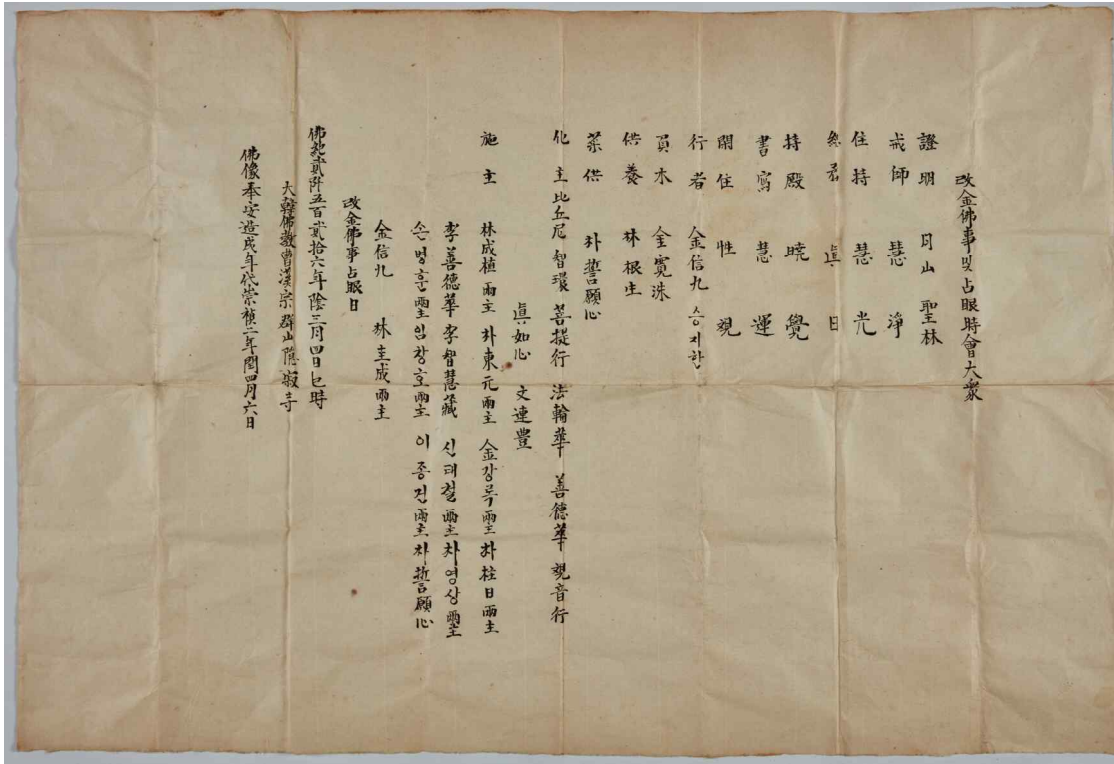 改金佛事및占眼時會大衆
證明 月山 聖林
戒師 慧淨
住持 慧光
總務 眞日
持殿 曉覺
書寫 慧運
閑住 性觀
行者 金信九 승지한
負木 金寬洙
供養 林根生
茶供 朴誓願心
化主比丘尼 智環 菩提行 法輪華 善德華 觀音行
眞如心 文連豊
施主 林成植兩主 朴東元兩主 金강록兩主 朴柱日兩主
李善德華 李智慧藏 신태철兩主 차영상兩主
손병훈兩主 임창호兩主 이종진兩主 朴誓願心
金信九 林圭成兩主
改金佛事占眼日
佛紀貳阡五百貳拾六年陰三月四日巳時
大韓佛敎曹溪宗群山隱寂寺
佛像奉安造成年代崇禎二年閏四月六日